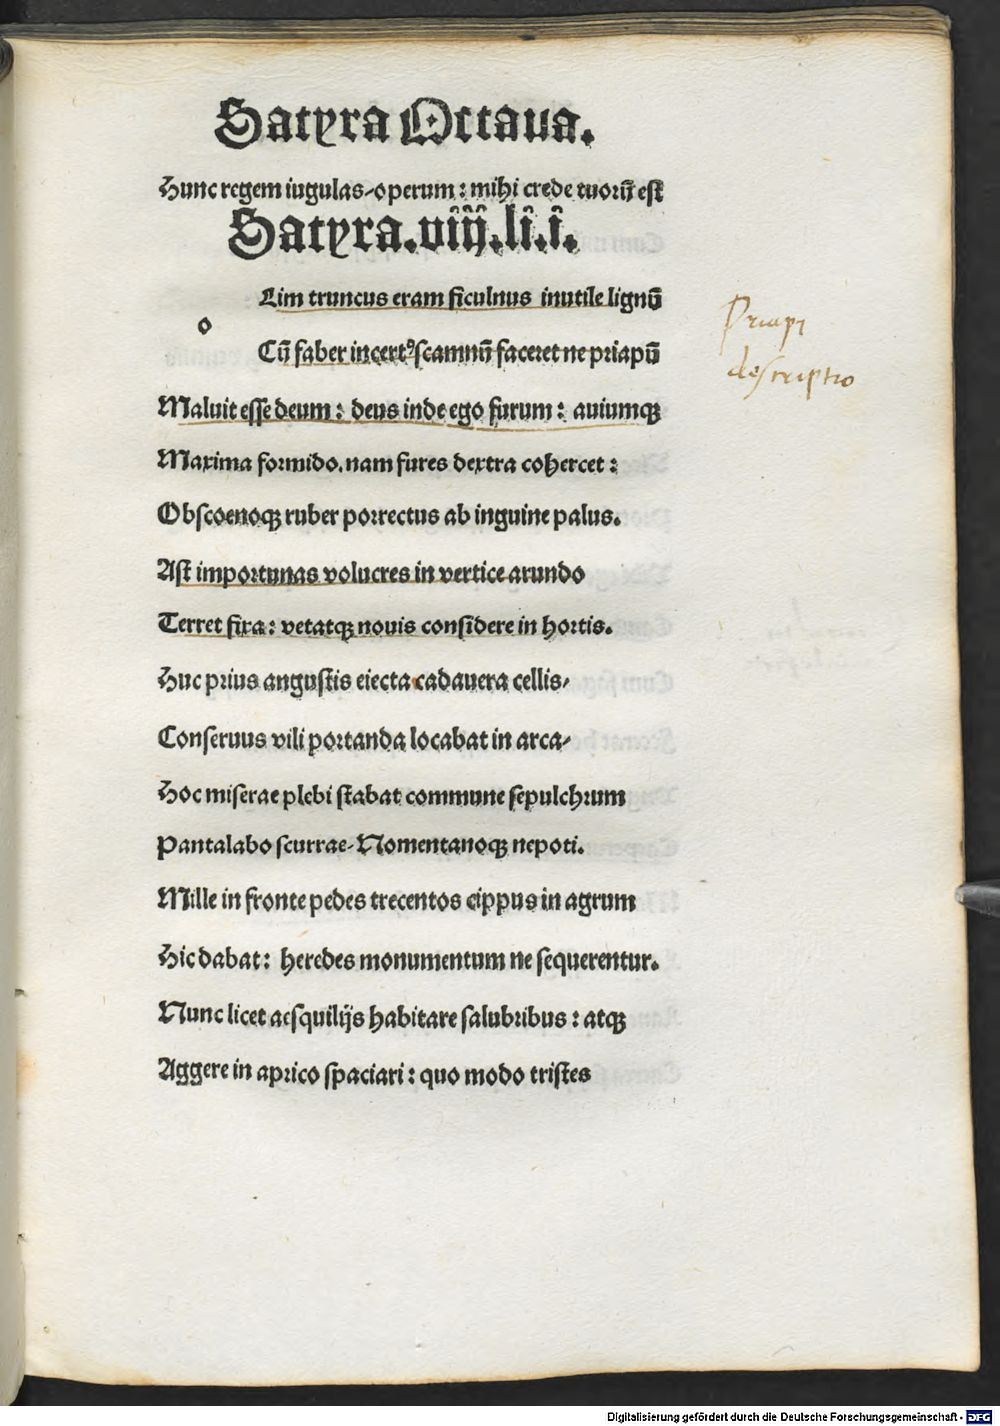 Satyra Octaua.
Hunc regem iugulas/operum: mihi crede tuorũ est
Satyra.viij.li.i.
Lim truncus eram ficulnus inutile lignũ
o
Cũ faber incertꝰ scamnũ faceret ne priapũ
Maluit esse deum: deus inde ego furum: auiumqꝫ
Maxima formido. nam fures dextra cohercet:
Obscoenoqꝫ ruber porrectus ab inguine palus.
Ast importunas volucres in vertice arundo
Terret fixa: vetatqꝫ nouis considere in hortis.
Huc prius angustis eiecta cadauera cellis/
Conseruus vili portanda locabat in arca/
Hoc miserae plebi stabat commune sepulchrum
Pantalabo scurrae/Nomentanoqꝫ nepoti.
Mille in fronte pedes trecentos cippus in agrum
Hic dabat: heredes monumentum ne sequerentur.
Nunc licet aesquilijs habitare salubribus: atqꝫ
Aggere in aprico spaciari: quo modo tristes
Priapi
descriptio
Digitalisierung gefördert durch die Deutsche Forschungsgemeinschaft - DFG